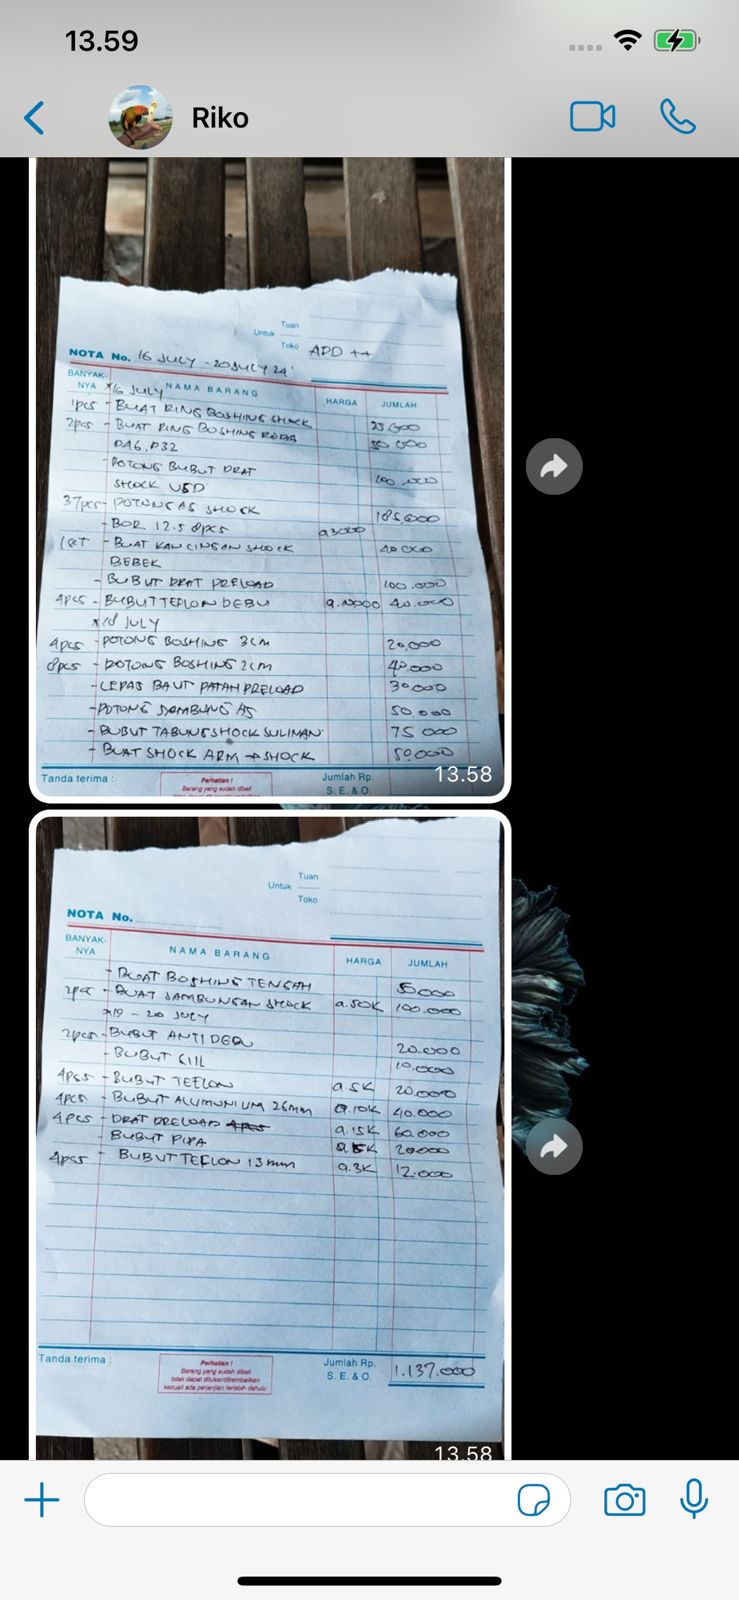 13.59
Riko
Tuan
Untuk
Toko APD ++
NOTA No. 16 JULY - 20 JULY 24'
BANYAK-NYA NAMA BARANG HARGA JUMLAH
*16 JULY
1pcs - BUAT RING BOSHING SHOCK 25.000
2pcs - BUAT RING BOSHING RODA 50 000
D16.D32
- POTONG BUBUT DRAT 100.000
SHOCK USD
37pcs - POTONG AS SHOCK 185.000
- BOR 12.5 8pcs @3000
1 SET - BUAT KANCINGAN SHOCK 40000
BEBEK
- BUBUT DRAT PRELOAD 100.000
4pcs - BUBUT TEFLON DEBU @.10000 40.000
*18 JULY
4pcs - POTONG BOSHING 3CM 20,000
8pcs - POTONG BOSHING 2CM 40.000
- LEPAS BAUT PATAH PRELOAD 30000
- POTONG SAMBUNG AS 50.000
- BUBUT TABUNG SHOCK SULIMAN 75 000
- BUAT SHOCK ARM → SHOCK 50,000
Tanda terima : Perhatian ! Jumlah Rp. 13.58
Barang yang sudah dibeli S. E. & O.
Tuan
Untuk
Toko
NOTA No.
BANYAK-NYA NAMA BARANG HARGA JUMLAH
- BUAT BOSHING TENGAH 50000
2pcs - BUAT SAMBUNGAN SHOCK @.50K 100.000
*19 - 20 JULY
2pcs - BUBUT ANTI DEBU 20.000
- BUBUT SIIL 10.000
4pcs - BUBUT TEFLON @.5K 20.000
4pcs - BUBUT ALUMUNIUM 26mm @.10K 40.000
4pcs - DRAT PRELOAD @.15K 60.000
- BUBUT PIPA @.5K 20000
4pcs - BUBUT TEFLON 13mm @.3K 12.000
Tanda terima : Perhatian ! Jumlah Rp. 1.137.000
Barang yang sudah dibeli S. E. & O.
tidak dapat ditukar/dikembalikan
kecuali ada perjanjian terlebih dahulu
13.58